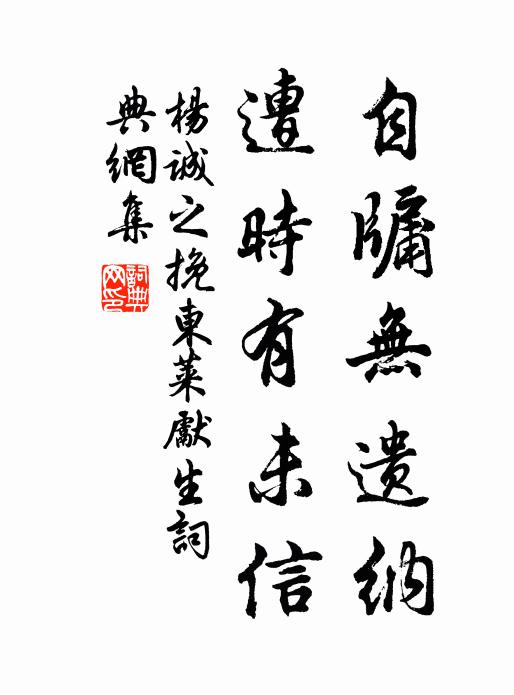 自牖無遗納
遭時有未信
楊誠之挽東萊獻生詞
典網集
詞典网印